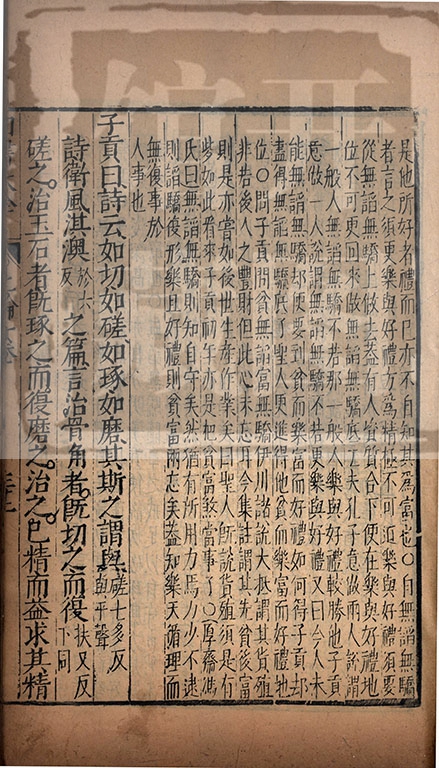 是他所好者禮而已亦不自知其爲富也○自無諂無驕
者言之須更樂與好禮方爲精極不可道樂與好禮須要
從無諂無驕上做去蓋有人資質合下便在樂與好禮地
位不可更回來做無諂無驕底工夫孔子意做兩人說謂
一般人無諂無驕不若那一般人樂與好禮較勝他子貢
意做一人說謂無諂無驕不若更樂與好禮又曰今人未
能無諂無驕却便要到貧而樂富而好禮如何得子貢却
盡得無諂無驕底了聖人更進得他貧而樂富而好禮地
位○問子貢問貧無諂富無驕伊川諸說大抵謂其貨殖
非若後人之豐財但此心未忘耳今集註謂其先貧後富
則是亦嘗如後世生產作業矣曰聖人旣說貨殖須是有
些如此看來子貢初年亦是把貧富煞當事了○厚齋馮
氏曰無諂無驕則知自守矣然猶有所用力焉少不逮
則諂驕復形樂且好禮則貧富兩忘矣蓋知樂天循理而
無復事於
人事也
子貢曰詩云如切如磋如琢如磨其斯之謂與磋七多反與平聲
詩衛風淇澳於六反之篇言治骨角者旣切之而復扶又反下同
磋之治玉石者旣琢之而復磨之治之已精而益求其精